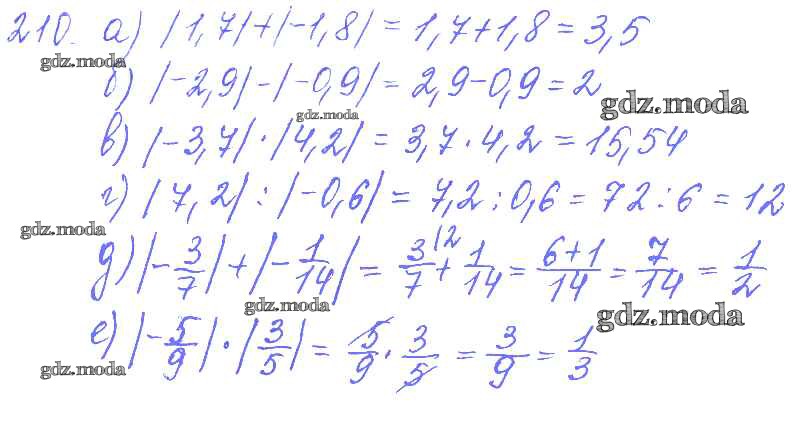 210. а) |1,7|+|-1,8| = 1,7+1,8 = 3,5
gdz.moda
б) |-2,9|-|-0,9| = 2,9-0,9 = 2
gdz.moda
gdz.moda
в) |-3,7|·|4,2| = 3,7·4,2 = 15,54
г) |7,2| : |-0,6| = 7,2 : 0,6 = 72 : 6 = 12
gdz.moda
д) |-3/7|+|-1/14| = 3/7|2 + 1/14 = 6+1/14 = 7/14 = 1/2
gdz.moda
gdz.moda
е) |-5/9|·|3/5| = 5/9 · 3/5 = 3/9 = 1/3
gdz.moda